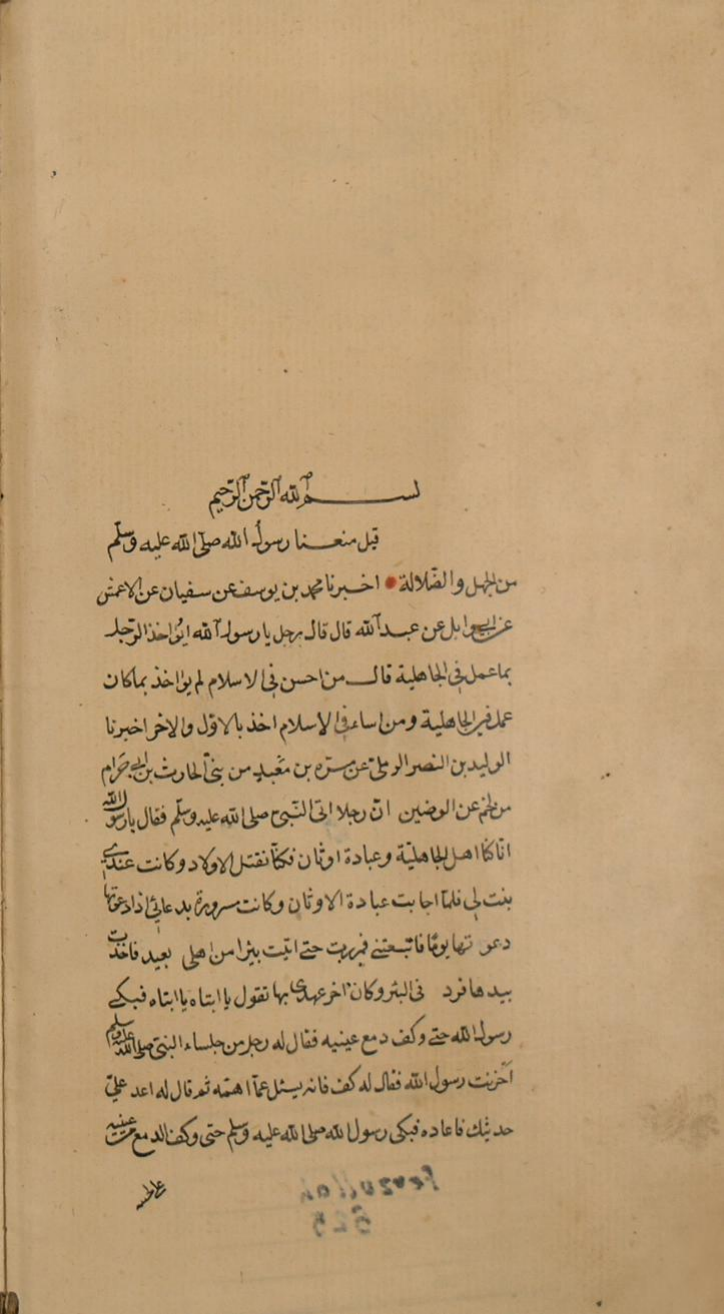 بسم الله الرحمن الرحيم
قبل مبعث رسول الله صلى الله عليه وسلم
من الجهل والضلالة اخبرنا محمد بن يوسف عن سفيان عن الاعمش
عن ابي وايل عن عبد الله قال قال رجل يا رسول الله ايؤاخذ الرجل
بما عمل في الجاهلية قال من احسن في الاسلام لم يؤاخذ بما كان
عمل في الجاهلية ومن اساء في الاسلام اخذ بالاول والاخر اخبرنا
الوليد بن النصر الرملي عن مسرة بن معبد من بني الحارث بن ابي حرام
من لخم عن الوضين ان رجلا اتى النبي صلى الله عليه وسلم فقال يا رسول الله
انا كنا اهل الجاهلية وعبادة اوثان فكنا نقتل الاولاد وكانت عندي
بنت لي فلما اجابت عبادة الاوثان وكانت مسرورة بدعائي اذا دعوتها
دعوتها يوما فاتبعتني فمررت حتى اتيت بيرا من اهلي بعيد فاخذت
بيدها فرد في البئر وكان اخر عهدي بها تقول يا ابتاه يا ابتاه فبكى
رسول الله حتى وكف دمع عينيه فقال له رجل من جلساء النبي صلى الله عليه وسلم
احزنت رسول الله فقال له كف فانه يسئل عما اهمه ثم قال له اعد علي
حديثك فاعاده فبكى رسول الله صلى الله عليه وسلم حتى وكف الدمع من عينيه
Feyzullah
525